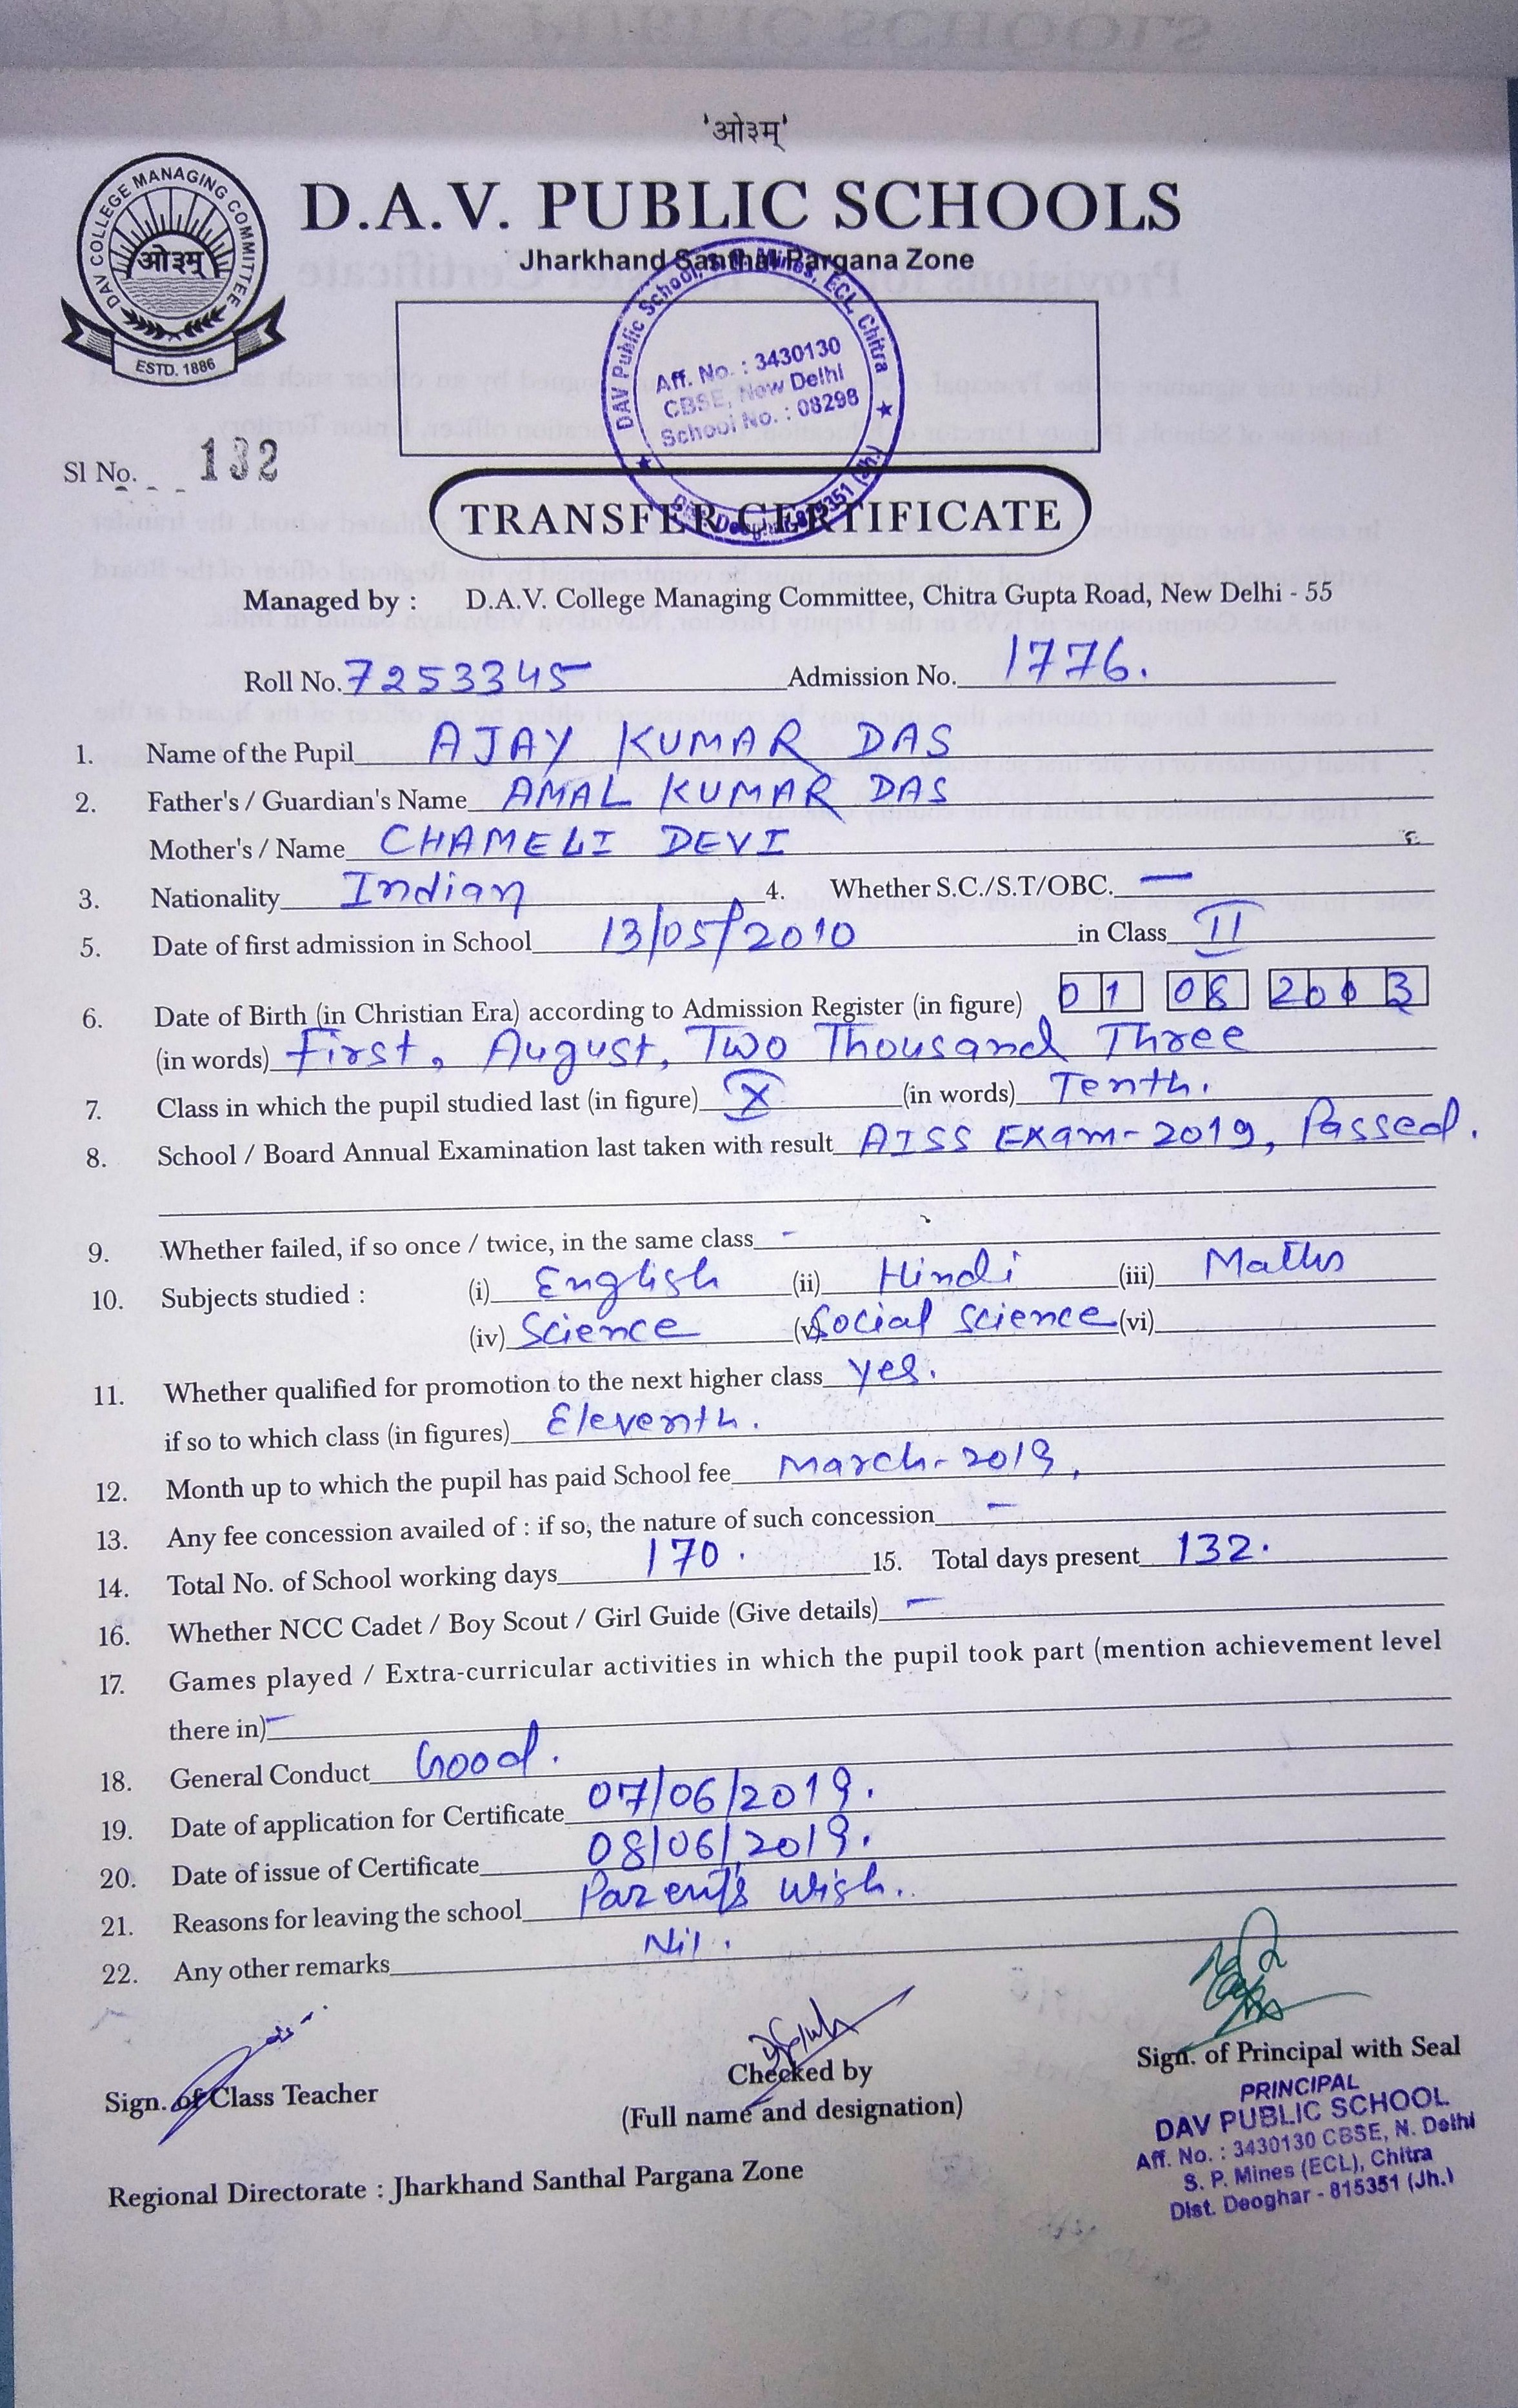 'ओ३म्'
DAV COLLEGE MANAGING COMMITTEE
ओ३म्
ESTD. 1886
D.A.V. PUBLIC SCHOOLS
Jharkhand Santhal Pargana Zone
DAV Public School, S.P. Mines, ECL, Chitra
Aff. No. : 3430130
CBSE, New Delhi
School No. : 08298
Dist. Deoghar-815351 (Jh.)
Sl No. 132
TRANSFER CERTIFICATE
Managed by : D.A.V. College Managing Committee, Chitra Gupta Road, New Delhi - 55
Roll No. 7253345 Admission No. 1776.
1. Name of the Pupil AJAY KUMAR DAS
2. Father's / Guardian's Name AMAL KUMAR DAS
Mother's / Name CHAMELI DEVI
3. Nationality Indian 4. Whether S.C./S.T/OBC. —
5. Date of first admission in School 13/05/2010 in Class II
6. Date of Birth (in Christian Era) according to Admission Register (in figure) 01 08 2003
(in words) First, August, Two Thousand Three
7. Class in which the pupil studied last (in figure) X (in words) Tenth.
8. School / Board Annual Examination last taken with result AISS Exam-2019, Passed.
9. Whether failed, if so once / twice, in the same class -
10. Subjects studied : (i) English (ii) Hindi (iii) Maths
(iv) Science (v) Social science (vi)
11. Whether qualified for promotion to the next higher class yes.
if so to which class (in figures) Eleventh.
12. Month up to which the pupil has paid School fee March-2019,
13. Any fee concession availed of : if so, the nature of such concession —
14. Total No. of School working days 170. 15. Total days present 132.
16. Whether NCC Cadet / Boy Scout / Girl Guide (Give details) —
17. Games played / Extra-curricular activities in which the pupil took part (mention achievement level
there in) —
18. General Conduct Good.
19. Date of application for Certificate 07/06/2019.
20. Date of issue of Certificate 08/06/2019.
21. Reasons for leaving the school Parent's Wish.
22. Any other remarks Nil.
Sign. of Class Teacher
Checked by
(Full name and designation)
Sign. of Principal with Seal
PRINCIPAL
DAV PUBLIC SCHOOL
Aff. No. : 3430130 CBSE, N. Delhi
S. P. Mines (ECL), Chitra
Dist. Deoghar - 815351 (Jh.)
Regional Directorate : Jharkhand Santhal Pargana Zone